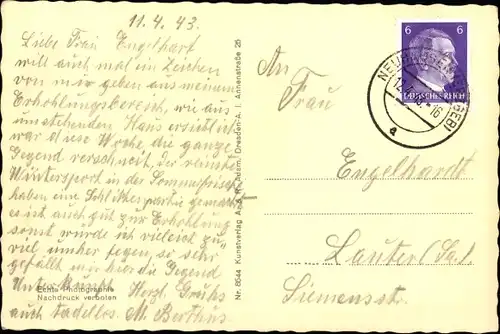 11.4.43.
Liebe Frau Engelhart
will auch mal ein Zeichen
von mir geben aus meinem
Erhohlungsbereich, wie aus
umstehenden Haus ersichtlich
war diese Woche die ganze
Gegend verschneit, der reinste
Wintersport in der Sommerfrische
haben eine Schlittenpartie gemacht
es ist auch gut zur Erhohlung
sonst würde ich vieleicht zu
viel umher fegen, so sehr
gefällt mir hier die Gegend
Unterkunft
auch tadellos. Herzl. Gruß
M. Berthus
Echte Photographie
Nachdruck verboten
Nr. 8544 Kunstverlag Adam, Dresden-A. 1, Ahnenstraße 25
An
Frau
Engelhardt
Lauter (Sa.)
Siemensst.
6 6
DEUTSCHES REICH
12.4.43-16
a